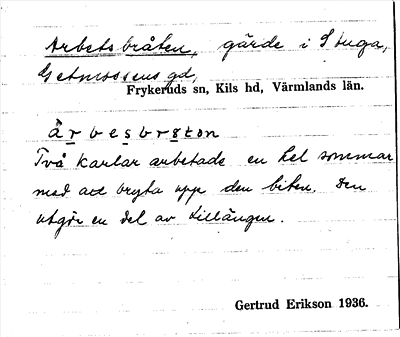 Arbetsbråten, gärde i Stuga,
Getmossens gd,
Frykeruds sn, Kils hd, Värmlands län.
Två karlar arbetade en hel sommar
med att bryta upp den biten. Den
utgör en del av Lillängen.
Gertrud Erikson 1936.